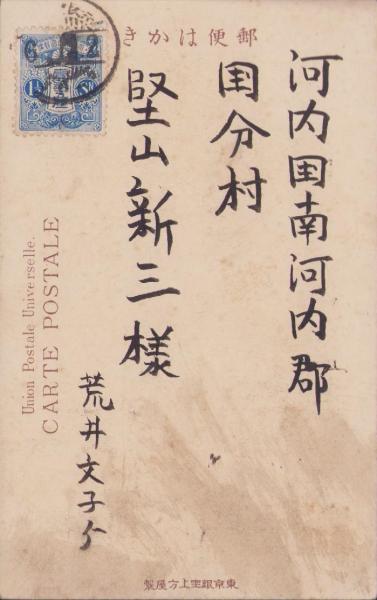 郵便はかき
河内国南河内郡
国分村
堅山新三様
荒井文子ゟ
Union Postale Universelle.
CARTE POSTALE
東京銀座上方屋製
6
2
1½
Sn